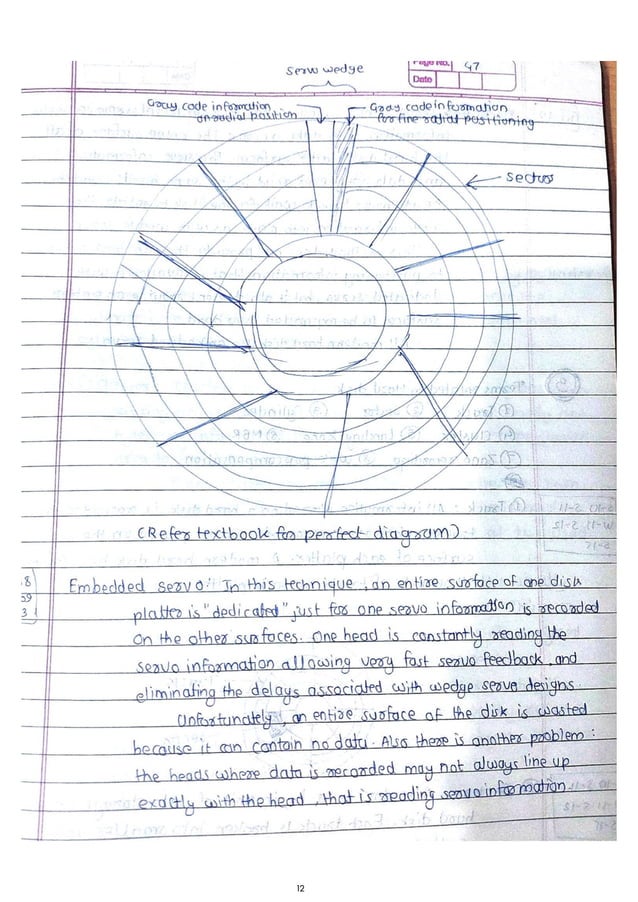 Page No. 47
Date
Servo wedge
Gray code information
on radial position
Gray code information
for fine radial positioning
Sector
(Refer textbook for perfect diagram)
Embedded servo: In this technique, an entire surface of one disk
platter is "dedicated" just for one servo information is recorded
on the other surfaces. One head is constantly reading the
servo information allowing very fast servo feedback, and
eliminating the delays associated with wedge servo designs.
Unfortunately, an entire surface of the disk is wasted
because it can contain no data. Also there is another problem:
the heads where data is recorded may not always line up
exactly with the head, that is reading servo information.
12